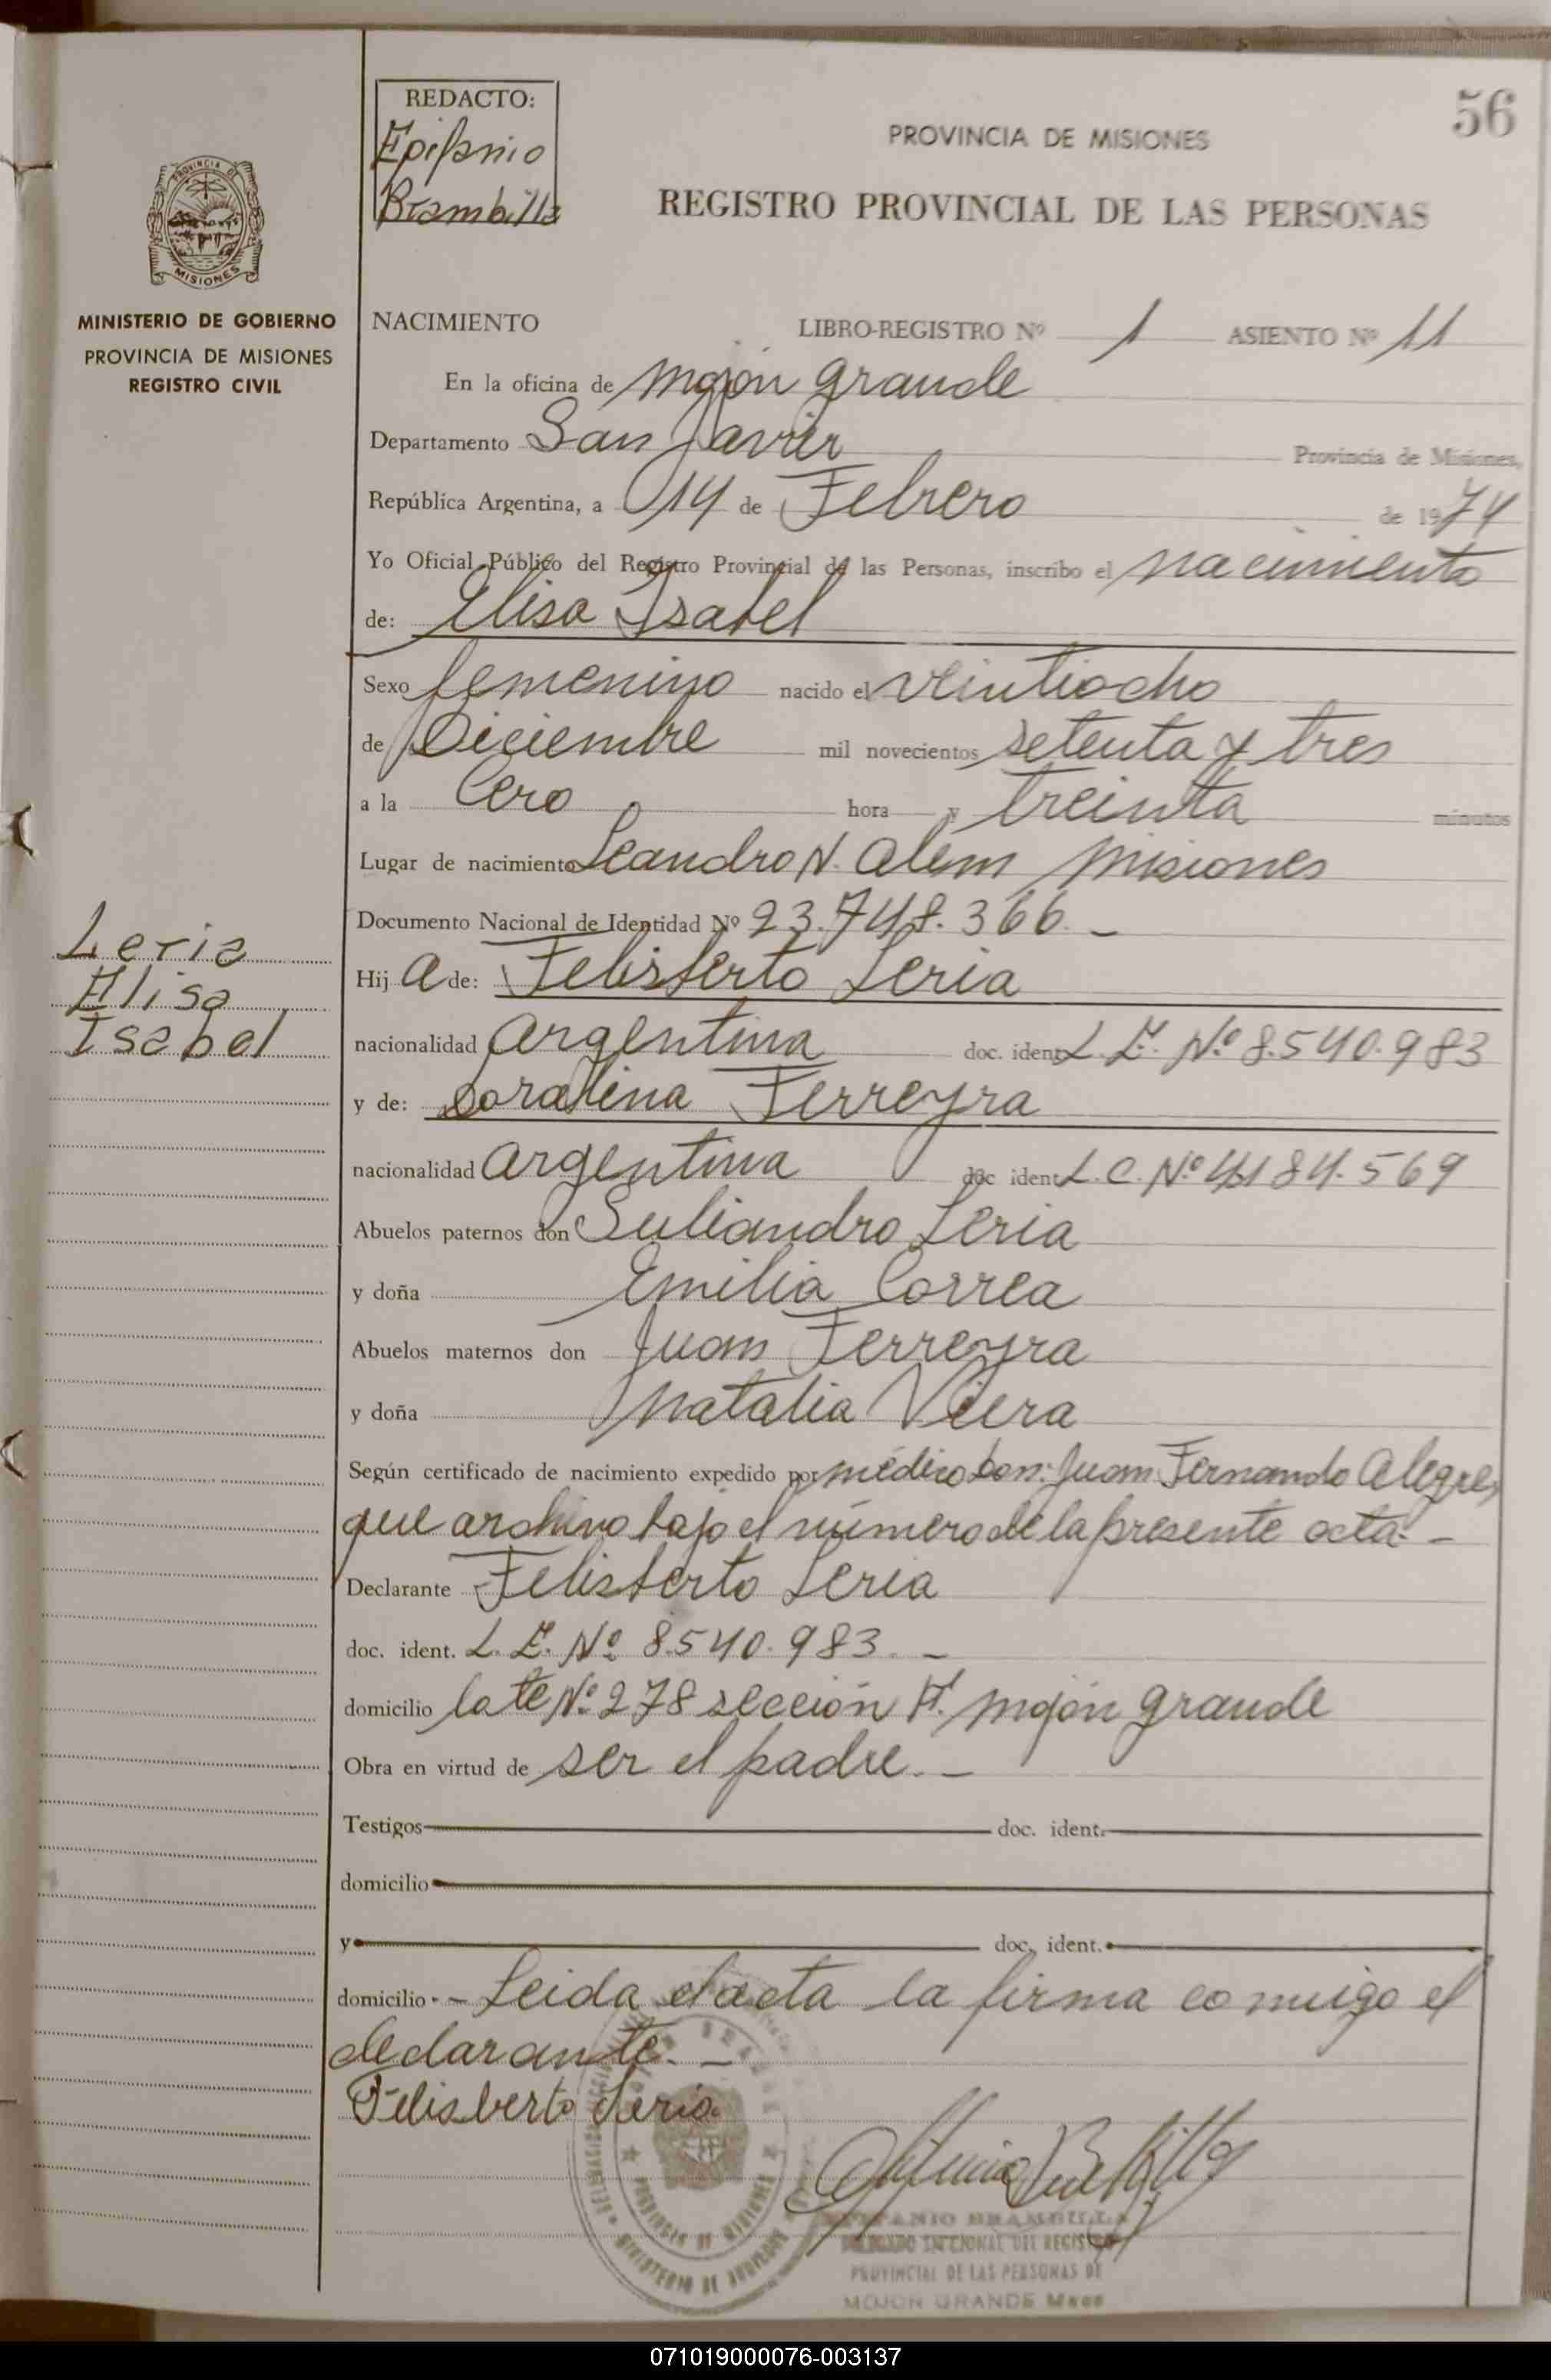 56
REDACTO:
Epifanio
Brambilla
PROVINCIA DE MISIONES
REGISTRO PROVINCIAL DE LAS PERSONAS
PROVINCIA DE
MISIONES
MINISTERIO DE GOBIERNO
PROVINCIA DE MISIONES
REGISTRO CIVIL
NACIMIENTO LIBRO-REGISTRO Nº 1 ASIENTO Nº 11
En la oficina de Mojón grande
Departamento San Javier Provincia de Misiones,
República Argentina, a 14 de Febrero de 1974
Yo Oficial Público del Registro Provincial de las Personas, inscribo el nacimiento
de: Elisa Isabel
Sexo femenino nacido el veintiocho
de Diciembre mil novecientos setenta y tres
a la Cero hora y treinta minutos
Lugar de nacimiento Leandro N. Alem Misiones
Documento Nacional de Identidad Nº 23.748.366. -
Leria
Elisa
Isabel
Hij a de: Felisberto Leria
nacionalidad Argentina doc. ident. L. E. Nº 8.540.983
y de: Doralina Ferreyra
nacionalidad Argentina doc ident. L. C. Nº 184.569
Abuelos paternos don Suliandro Leria
y doña Emilia Correa
Abuelos maternos don Juan Ferreyra
y doña Natalia Viera
Según certificado de nacimiento expedido por médico Don: Juan Fernando Alegre,
que archivo bajo el número de la presente acta. -
Declarante Felisberto Leria
doc. ident. L. E. Nº 8.540.983. -
domicilio lote Nº 278 sección Mojón grande
Obra en virtud de ser el padre. -
Testigos doc. ident.
domicilio
y doc. ident.
domicilio - Leida el acta la firma comigo el
declarante. -
Felisberto Leria
EPIFANIO BRAMBILLA
DELEGADO SECCIONAL DEL REGISTRO
PROVINCIAL DE LAS PERSONAS DE
MOJON GRANDE Mnes
PROVINCIA DE MISIONES
MINISTERIO DE GOBIERNO
071019000076-003137